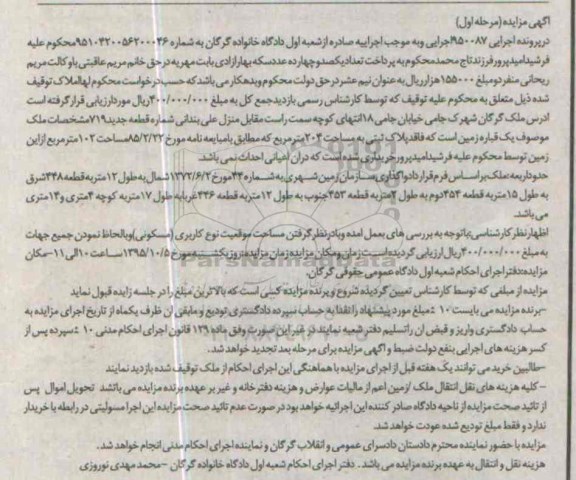 آگهی مزایده (مرحله اول)
درپرونده اجرایی ۹۵۰۰۸۷اجرایی وبه موجب اجراییه صادره ازشعبه اول دادگاه خانواده گرگان به شماره ۹۵۱۰۴۲۰۰۵۶۲۰۰۰۴۶محکوم علیه
فرشیدامیدپرورفرزندتاج محمدمحکوم به پرداخت تعدادیکصدوچهارده عددسکه بهارازادی بابت مهریه درحق خانم مریم عاقبتی باوکالت مریم
ریحانی منفردومبلغ ۱۵۵۰۰۰هزارریال به عنوان نیم عشردرحق دولت محکوم وبدهکارمی باشدکه حسب درخواست محکوم لهالملاک توقیف
شده ذیل متعلق به محکوم علیه توقیف که توسط کارشناس رسمی بازدیدجمع کل به مبلغ ۴۰۰/۰۰۰/۰۰۰ریال موردارزیابی قرارگرفته است
ادرس ملک گرگان شهرک جامی خیابان جامی ۱۸انتهای کوچه سمت راست مقابل منزل علی بندانی شماره قطعه جدید۷۱۹مشخصات ملک
موصوف یک قباره زمین است که فاقدپلاک ثبتی به مساحت ۲۰۴مترمربع که مطابق بامبایعه نامه مورخ ۸۵/۲/۲۲مساحت ۱۰۲مترمربع ازاین
زمین توسط محکوم علیه فرشیدامیدپرورخریداری شده است که دران اعیانی احداث نمی باشد.
حدودا ربعه ملک براساس فرم قرارداد واگذاری سازمان زمین شهری به شماره ۴۴مورخ ۱۳۷۲/۶/۲شمال به طول ۱۲متربه قطعه ۴۴۸شرق
به طول ۱۵متربه قطعه ۴۵۴دوم به طول ۲متربه قطعه ۴۵۳جنوب به طول ۱۲متربه قطعه ۴۴۶غربابه طول ۱۷متربه کوچه ۴متری و۱۴متری
می باشد.
اظهارنظرکارشناسی:باتوجه به بررسی های بعمل امده وبادرنظرگرفتن مساحت موقعیت نوع کاربری (مسکونی)وبالحاظ نمودن جمیع جهات
به مبلغ ۴۰۰/۰۰۰/۰۰۰ریال ارزیابی گردیده است زمان ومکان مزایده:زمان مزایده:روزیکشنبه مورخ ۱۳۹۵/۱۰/۵ساعت ۱۰الی ۱۱-مکان
مزایده:دفتراجرای احکام شعبه اول دادگاه عمومی حقوقی گرگان.
مزایده از مبلغی که توسط کارشناس تعیین گردیده شروع وبرنده مزایده کسی است که بالاترین مبلغ را در جلسه زایده قبول نماید
-برنده مزایده می بایست ۱۰٪ مبلغ مورد پیشنهاد را نقدا به حساب سپرده دادگستری تودیع و مابقی ان ظرف یکماه از تاریخ اجرای مزایده به
حساب دادگستری واریز و قبض ان راتسلیم دفتر شعبه نمایند در غیر این صورت وفق ماده ۱۲۹ قانون اجرای احکام مدنی ۱۰٪ سپرده پس از
کسر هزینه های اجرایی بنفع دولت ضبط و آگهی مزایده برای مرحله بعد تجدید خواهد شد.
-طالبین خرید می توانند یک هفته قبل از اجرای مزایده با هماهنگی این اجرای احکام از ملک توقیف شده بازدید نمایند
- کلیه هزینه های نقل انتقال ملک ازمین اعم از مالیات عوارض و هزینه دفتر خانه و غیر بر عهده برنده مزایده می باتشد تحویل اموال پس
از تائید صحت مزایده از ناحیه دادگاه صادر کننده این اجرائیه خواهد بود در صورت عدم تائید صحت مزایده این اجرا مسولیتی در رابطه با خریدار
ندارد و فقط مبلغ تودیع شده عودت خواهد شد.
مزایده با حضور نماینده محترم دادستان دادسرای عمومی و انقلاب گرگان و نماینده اجرای احکام مدنی انجام خواهد شد.
هزینه نقل و انتقال به عهده برنده مزایده می باشد. دفتر اجرای احکام شعبه اول دادگاه خانواده گرگان -محمد مهدی نوروزی